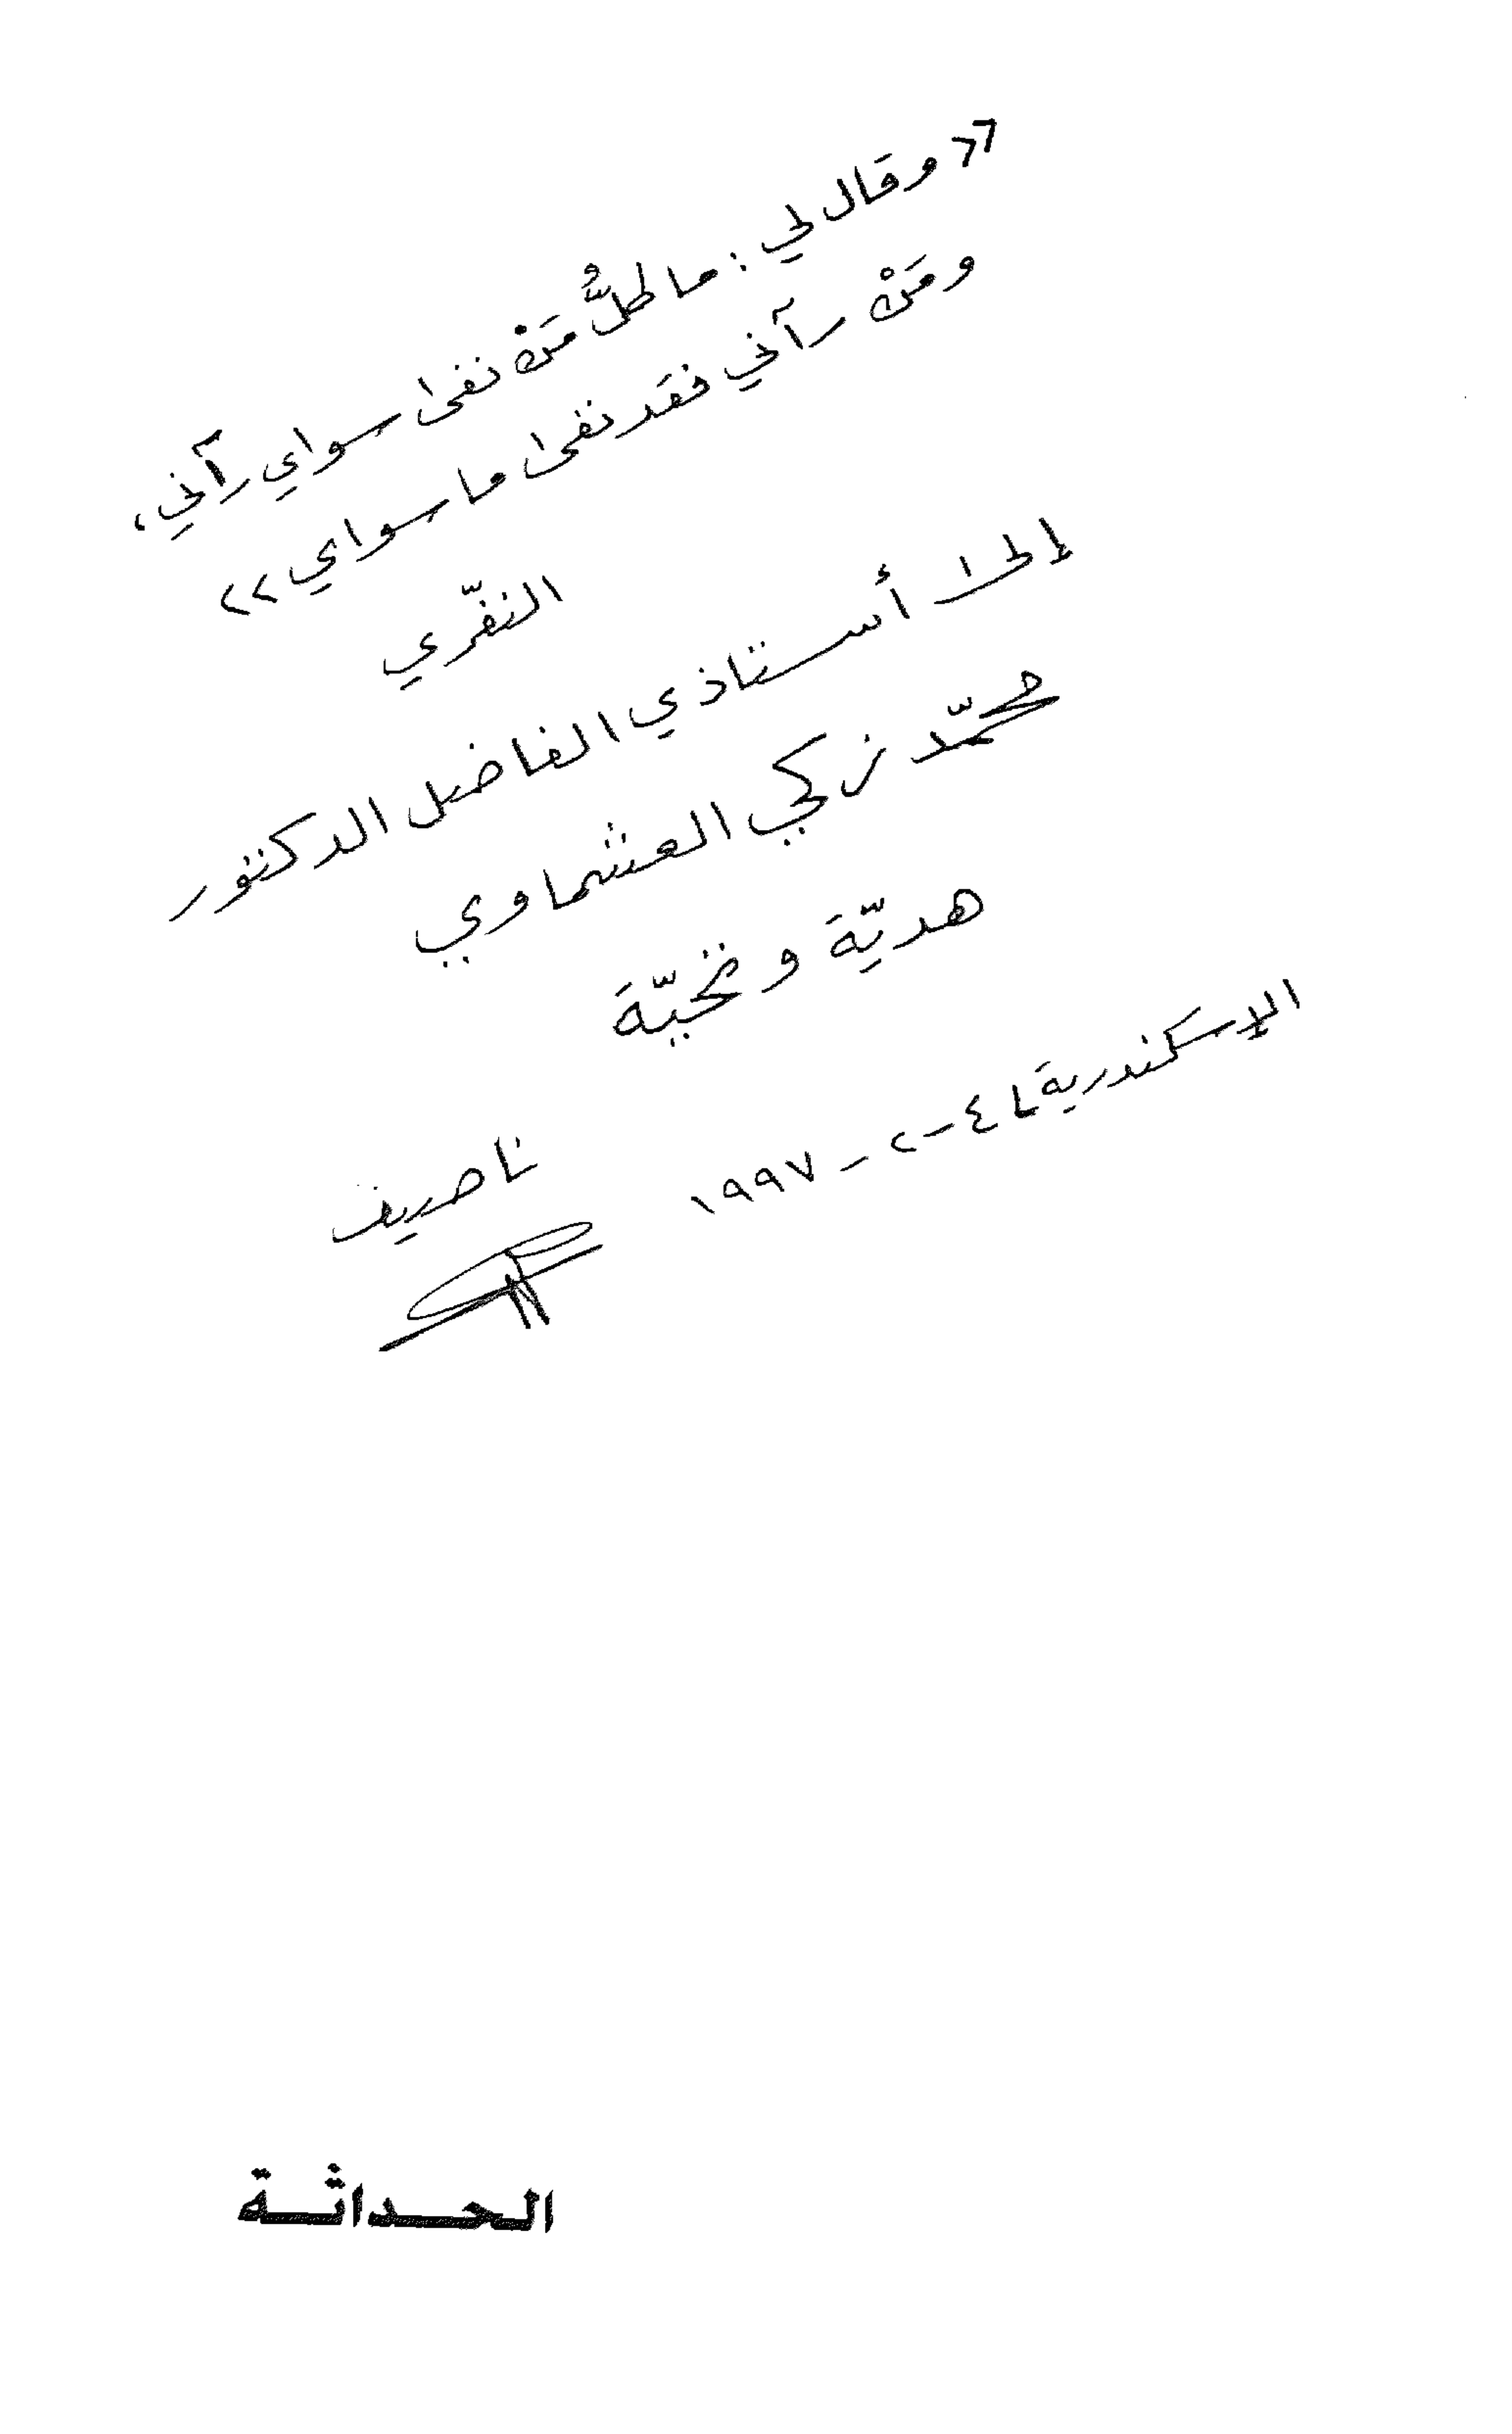 «وقال لي: ما كلُّ مَنْ نفى سواي رآني،
ومَنْ رآني فقد نفى ما سواي»
النفّري
إلى أستاذي الفاضل الدكتور
محمّد زكي العشماوي
هديّة وتحيّة
الإسكندرية ٤-٢-١٩٩٧
ناصيف
الحداثة